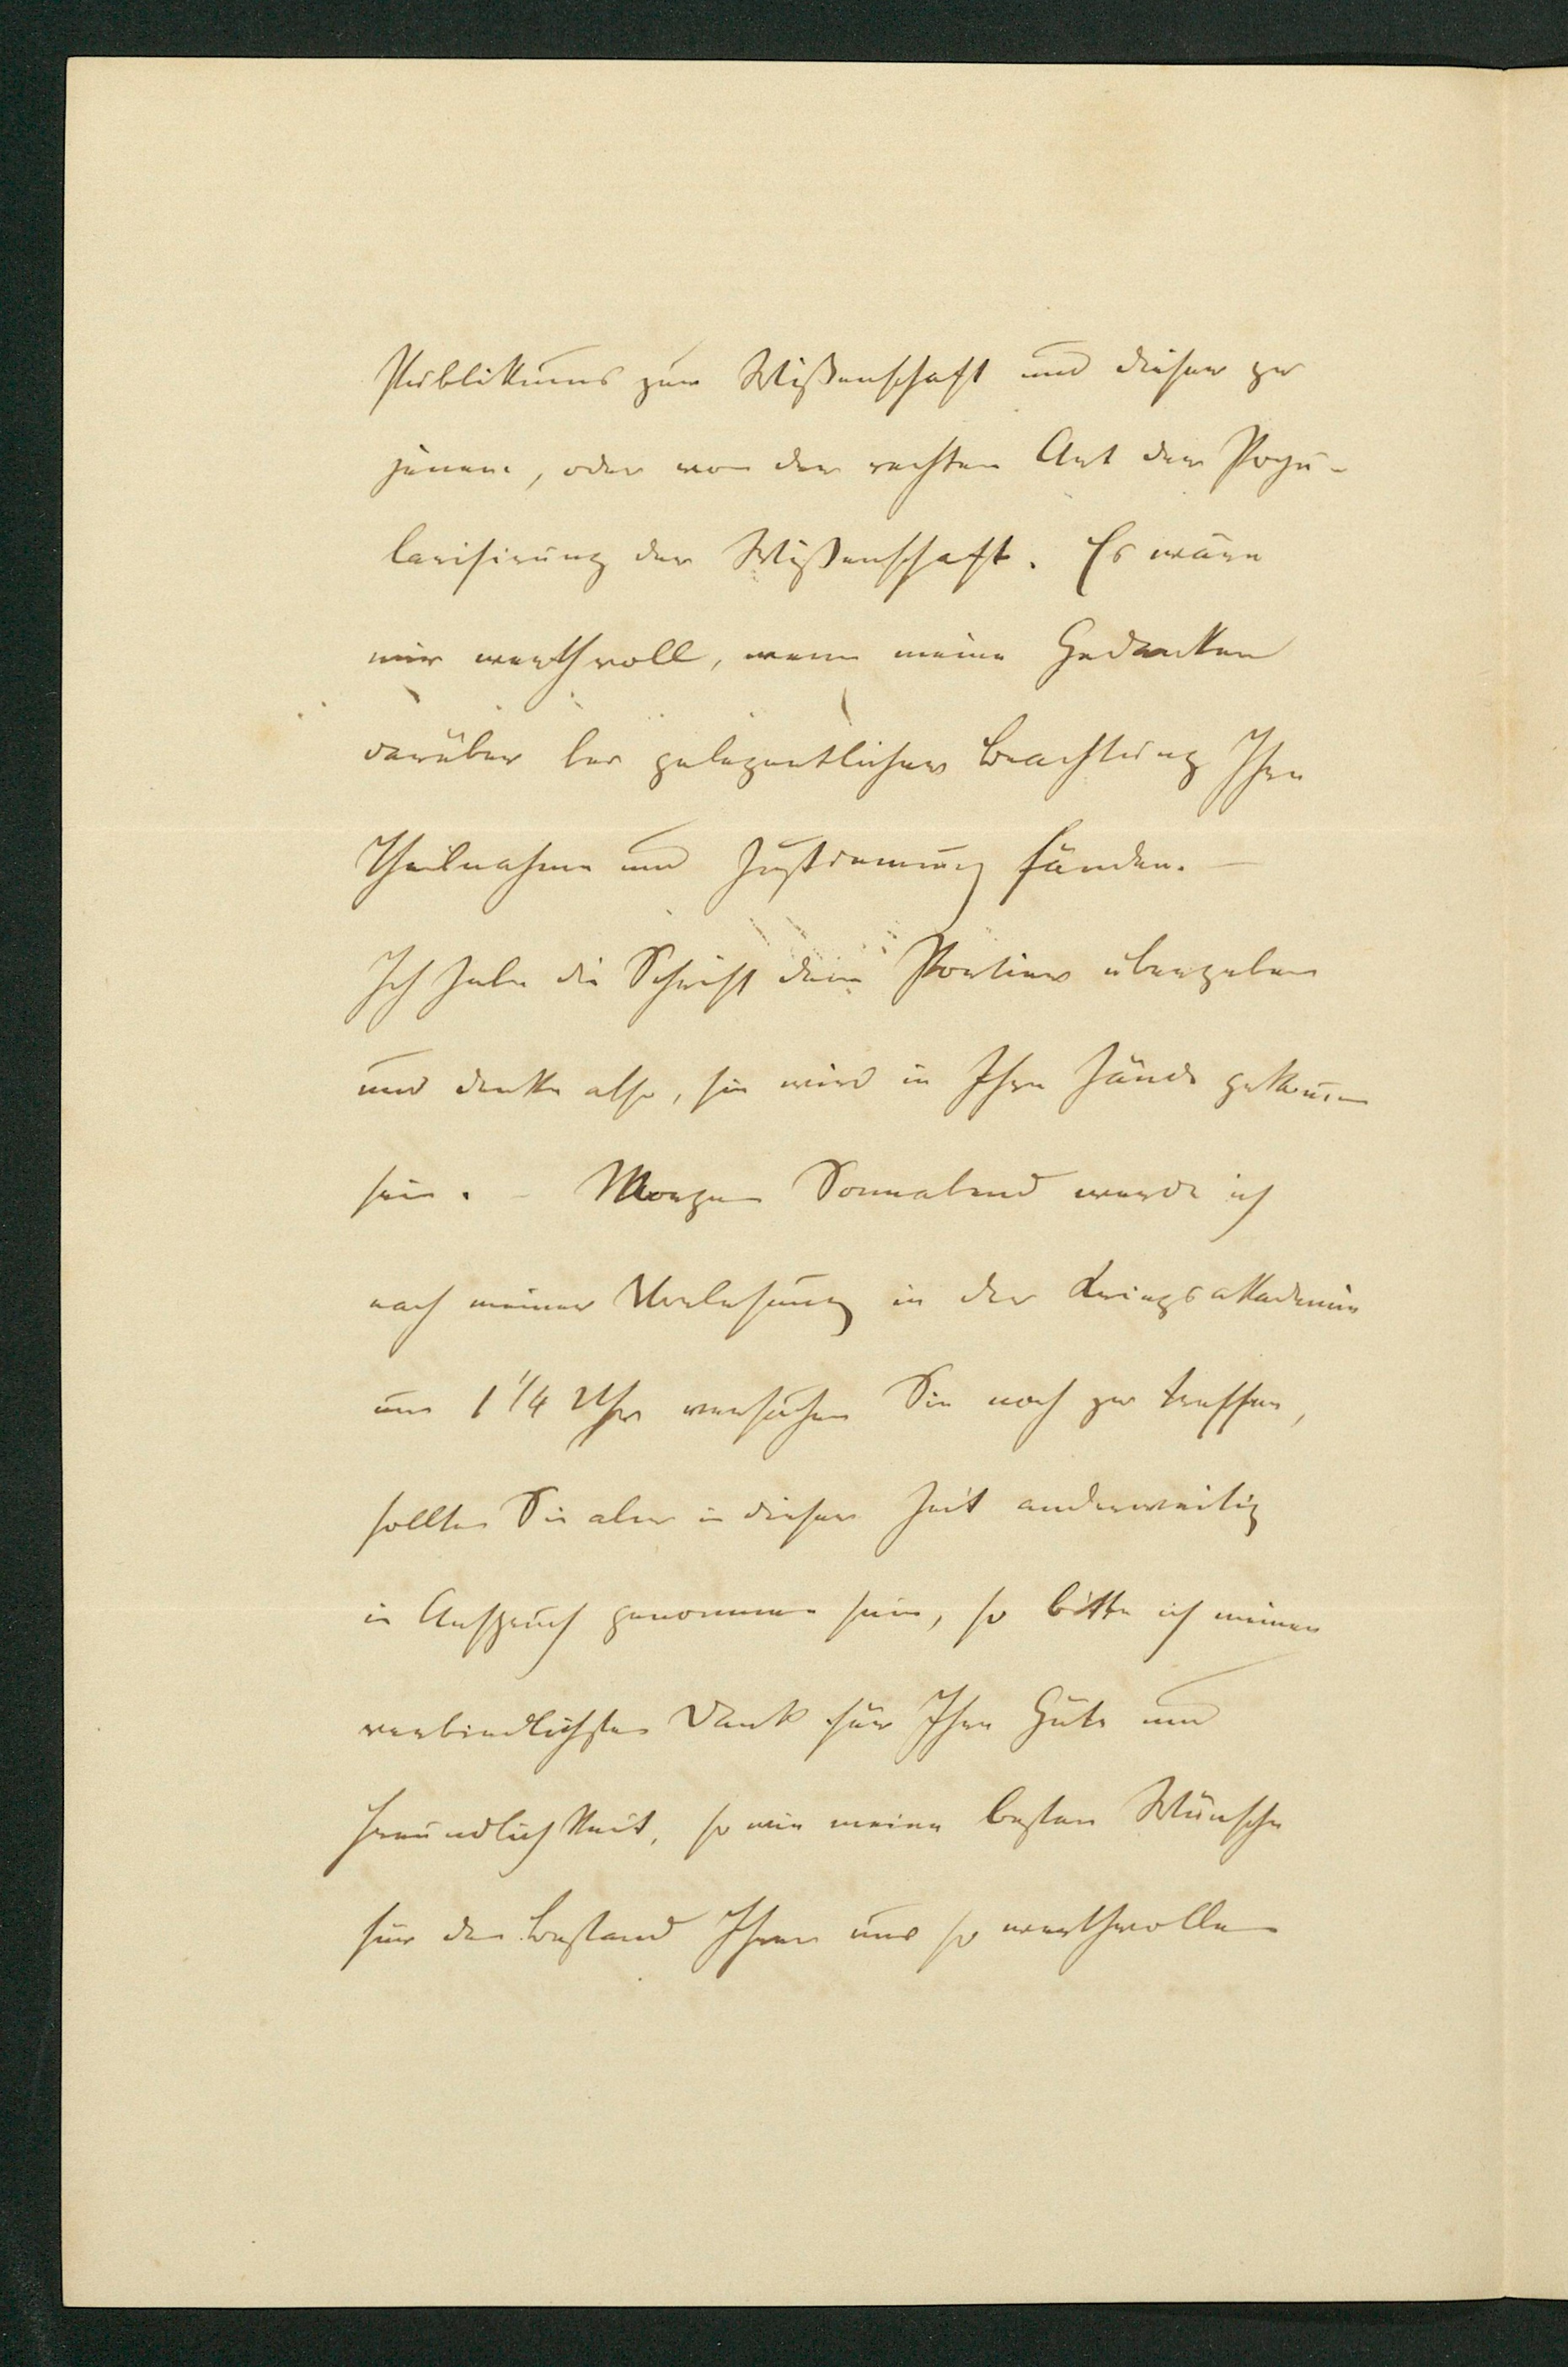 Publikums zur Wißenschaft und dieser zu
jenem, oder von der rechten Art der Popu-
larisirung der Wißenschaft. Es wäre
mir werthvoll, wenn meine Gedanken
darüber bei gelegentlicher Beachtung Ihre
Theilnahme und Zustimmung fänden. –
Ich habe die Schrift dem Portier übergeben
und denke also, sie wird in Ihre Hände gekommen
sein. – Morgen Sonnabend werde ich
nach meiner Vorlesung in der Kriegsakademie
um 1 1/4 Uhr versuchen Sie noch zu treffen,
sollten Sie aber in dieser Zeit anderweitig
in Anspruch genommen sein, so bitte ich meinen
verbindlichsten Dank für Ihre Güte und
Freundlichkeit, so wie meine besten Wünsche
für den Bestand Ihrer uns so werthvollen